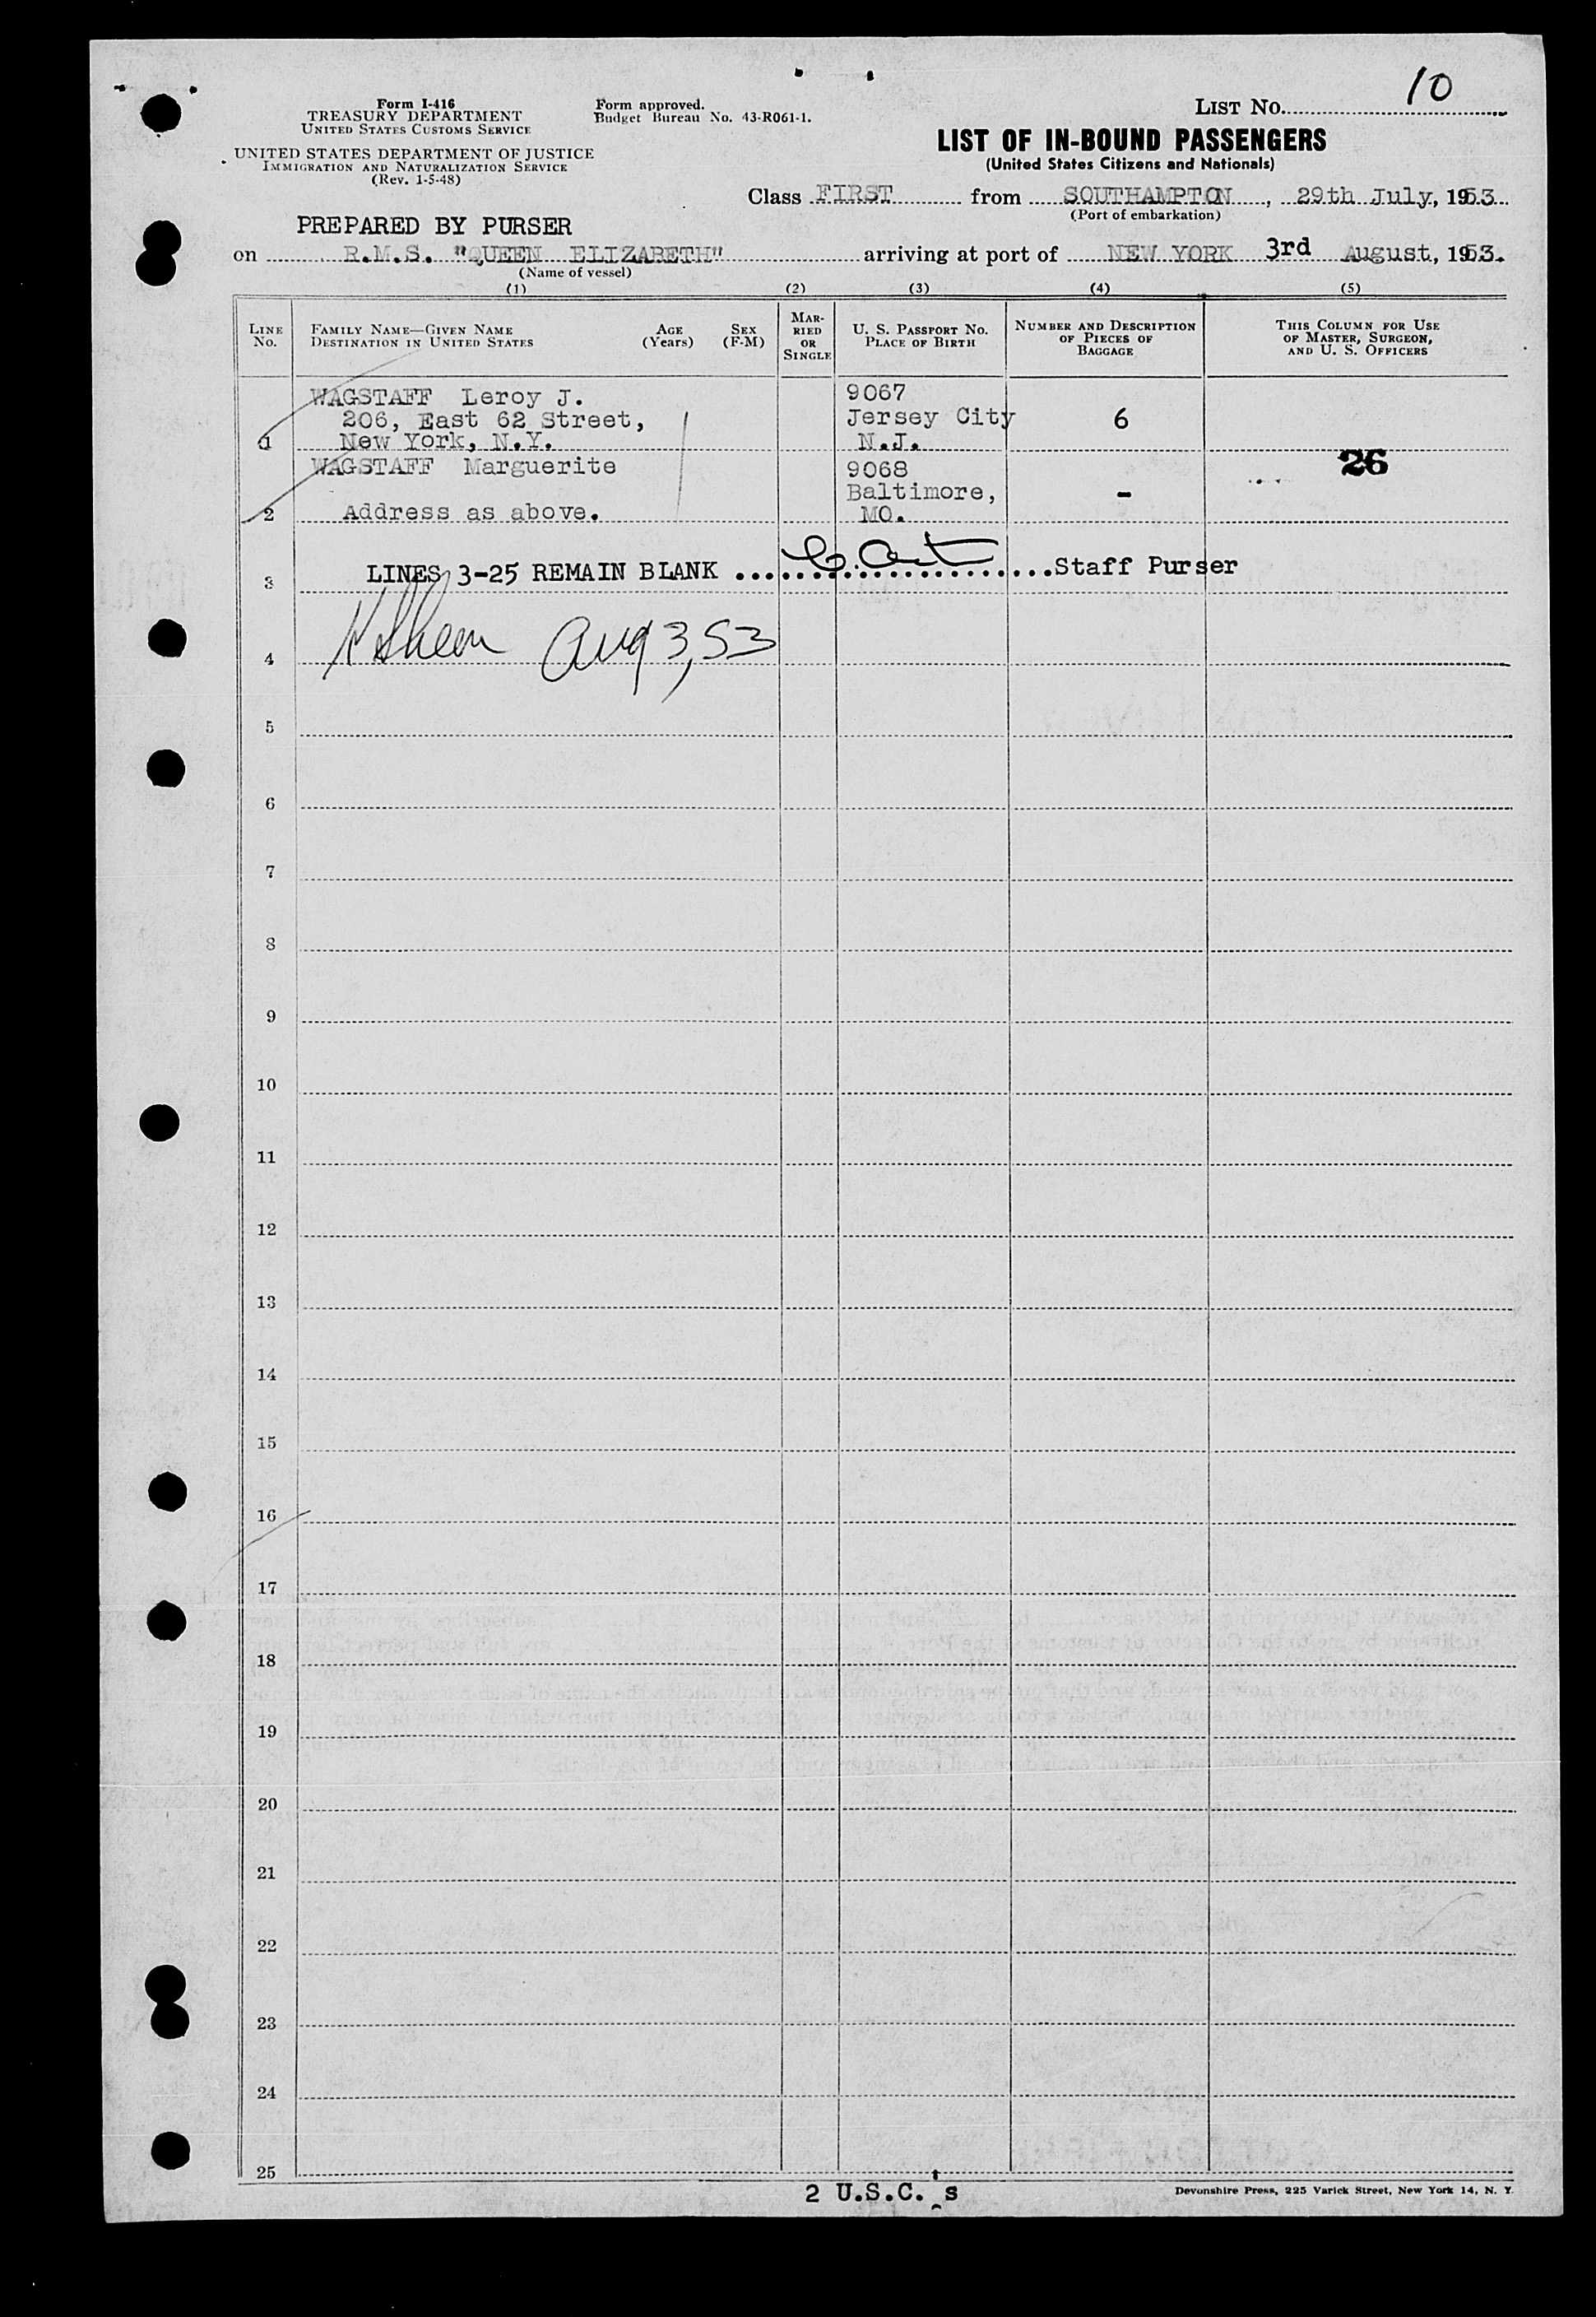 10
Form I-416
TREASURY DEPARTMENT
UNITED STATES CUSTOMS SERVICE
UNITED STATES DEPARTMENT OF JUSTICE
IMMIGRATION AND NATURALIZATION SERVICE
(Rev. 1-5-48)
Form approved.
Budget Bureau No. 43-R061-1.
LIST NO.
LIST OF IN-BOUND PASSENGERS
(United States Citizens and Nationals)
Class FIRST from SOUTHAMPTON, 29th July, 1953
(Port of embarkation)
PREPARED BY PURSER
on R.M.S. "QUEEN ELIZABETH" arriving at port of NEW YORK 3rd August, 1953.
(Name of vessel)
(1) (2) (3) (4) (5)
LINE No.
FAMILY NAME—GIVEN NAME
DESTINATION IN UNITED STATES
AGE (Years)
SEX (F-M)
MARRIED OR SINGLE
U. S. PASSPORT No.
PLACE OF BIRTH
NUMBER AND DESCRIPTION
OF PIECES OF
BAGGAGE
THIS COLUMN FOR USE
OF MASTER, SURGEON,
AND U. S. OFFICERS
WAGSTAFF Leroy J. 9067
206, East 62 Street, Jersey City 6
1 New York, N.Y. N.J.
WAGSTAFF Marguerite 9068 26
Baltimore, -
2 Address as above. MO.
3 LINES 3-25 REMAIN BLANK Staff Purser
4 Aug 3, 53
5
6
7
8
9
10
11
12
13
14
15
16
17
18
19
20
21
22
23
24
25
2 U.S.C.'s
Devonshire Press, 225 Varick Street, New York 14, N. Y.